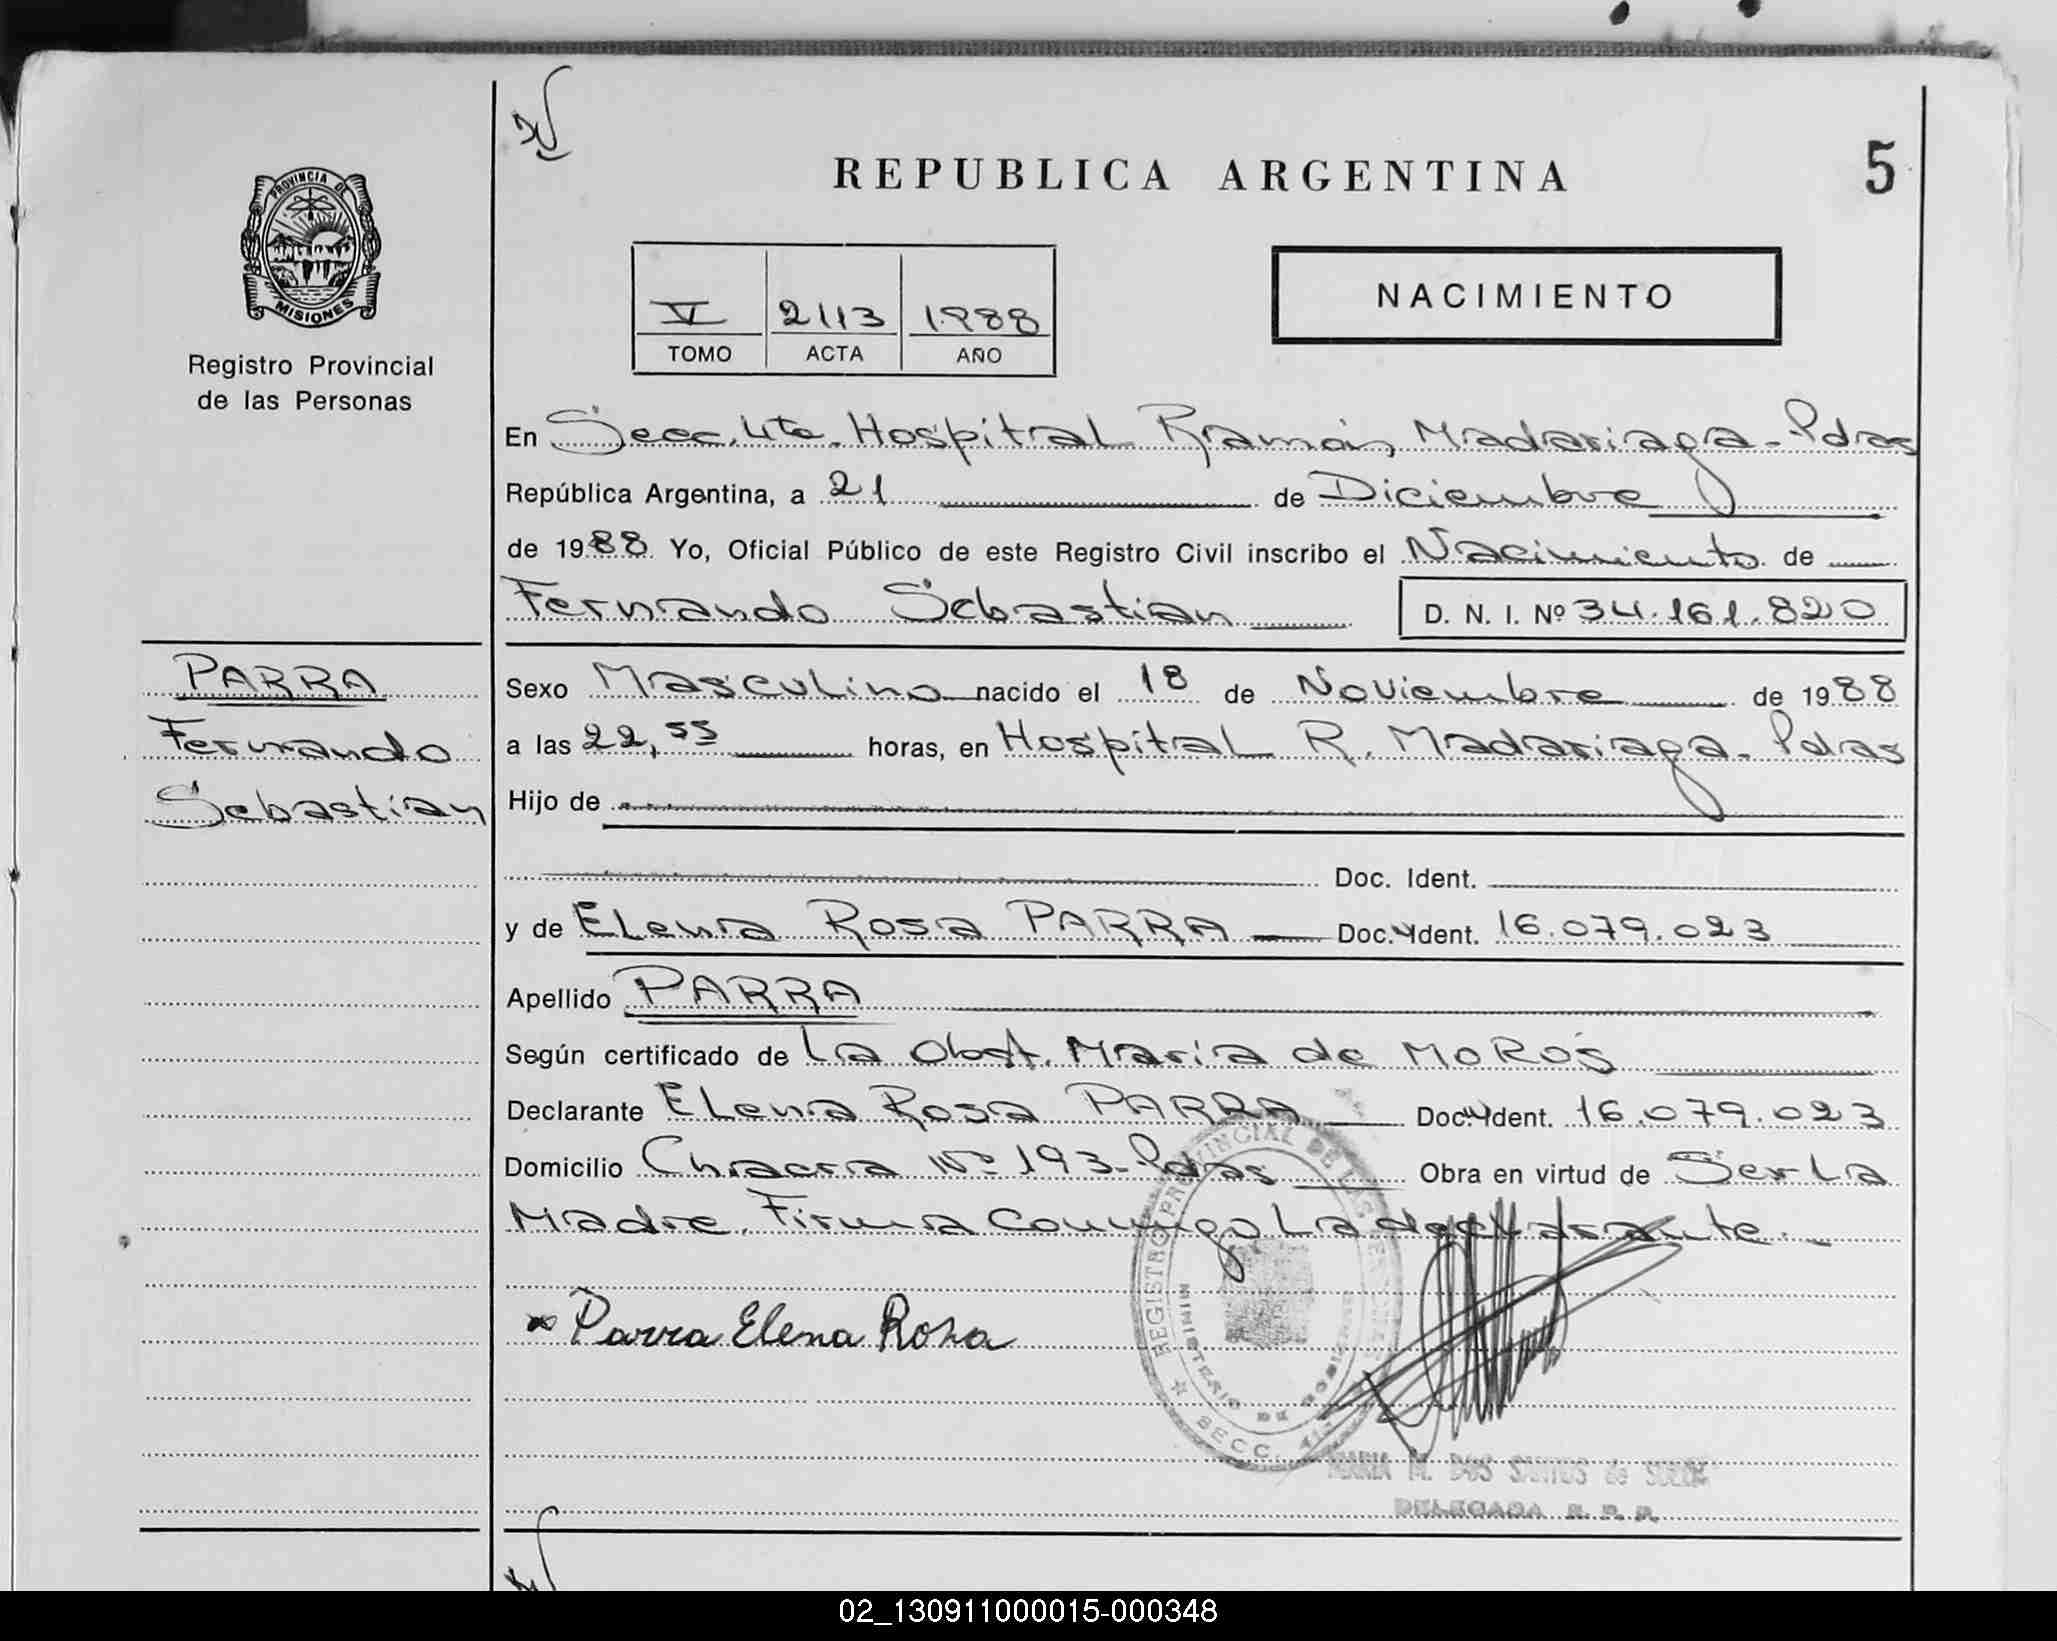 REPUBLICA ARGENTINA
5
PROVINCIA DE
MISIONES
Registro Provincial
de las Personas
V 2113 1988
TOMO ACTA AÑO
NACIMIENTO
En Secc. 4ta. Hospital Ramón Madariaga - Pdas
República Argentina, a 21 de Diciembre
de 1988 Yo, Oficial Público de este Registro Civil inscribo el Nacimiento de
Fernando Sebastian D. N. I. Nº 34.161.820
PARRA
Fernando
Sebastian
Sexo Masculino nacido el 18 de Noviembre de 1988
a las 22,55 horas, en Hospital R. Madariaga - Pdas
Hijo de
Doc. Ident.
y de Elena Rosa PARRA Doc. Ident. 16.079.023
Apellido PARRA
Según certificado de La Obst. María de MOROS
Declarante Elena Rosa PARRA Doc. Ident. 16.079.023
Domicilio Chacra Nº 193 - Pdas Obra en virtud de Ser La
Madre. Firma Conmigo La declarante. -
Parra Elena Rosa
REGISTRO PROVINCIAL DE LAS
MINISTERIO DE GOBIERNO
SECC. 4
MARIA M. DOS SANTOS de
DELEGADA R. P. P.
02_130911000015-000348